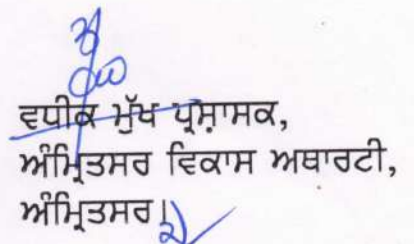 ਵਧੀਕ ਮੁੱਖ ਪ੍ਰਸ਼ਾਸਕ,
ਅੰਮ੍ਰਿਤਸਰ ਵਿਕਾਸ ਅਥਾਰਟੀ,
ਅੰਮ੍ਰਿਤਸਰ।